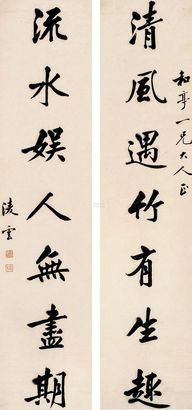 和亭一兄大人正
清風遇竹有生趣
流水娱人無盡期
淩雲